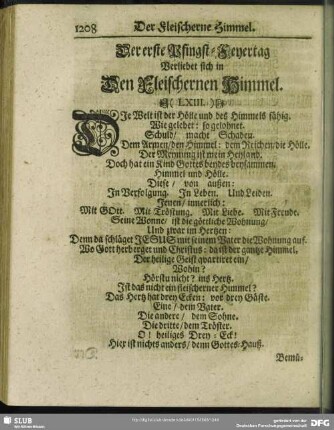 1208 Der Fleischerne Himmel.
Der erste Pfingst-Feyertag
Verliebet sich in
Den Fleischernen Himmel.
LXIII.
Die Welt ist der Hölle und des Himmels fähig.
Wie gelebet: so gelohnet.
Schuld/ macht Schaden.
Dem Armen/ den Himmel: dem Reichen/ die Hölle.
Der Meynung ist mein Heyland.
Doch hat ein Kind Gottes beydes beysammen.
Himmel und Hölle.
Diese/ von außen:
In Verfolgung. In Leben. Und Leiden.
Jenen/ innerlich:
Mit GOtt. Mit Tröstung. Mit Liebe. Mit Freude.
Seine Wonne/ ist die götliche Wohnung/
Und zwar im Hertzen:
Denn da schläget JESUS mit seinem Vater die Wohnung auf.
Wo Gott herberget und Christus: da ist der gantze Himmel.
Der heilige Geist qvartiret ein/
Wohin?
Hörstu nicht? ins Hertz.
Ist das nicht ein fleischerner Himmel?
Das Hertz hat drey Ecken: vor drey Gäste.
Eine/ dem Vater.
Die andere/ dem Sohne.
Die dritte/ dem Tröster.
O! heiliges Drey-Eck!
Hier ist nichts anders/ denn Gottes Hauß.
Bemü-
SLUB
Wir führen Wissen.
gefördert von der
Deutschen Forschungsgemeinschaft
DFG